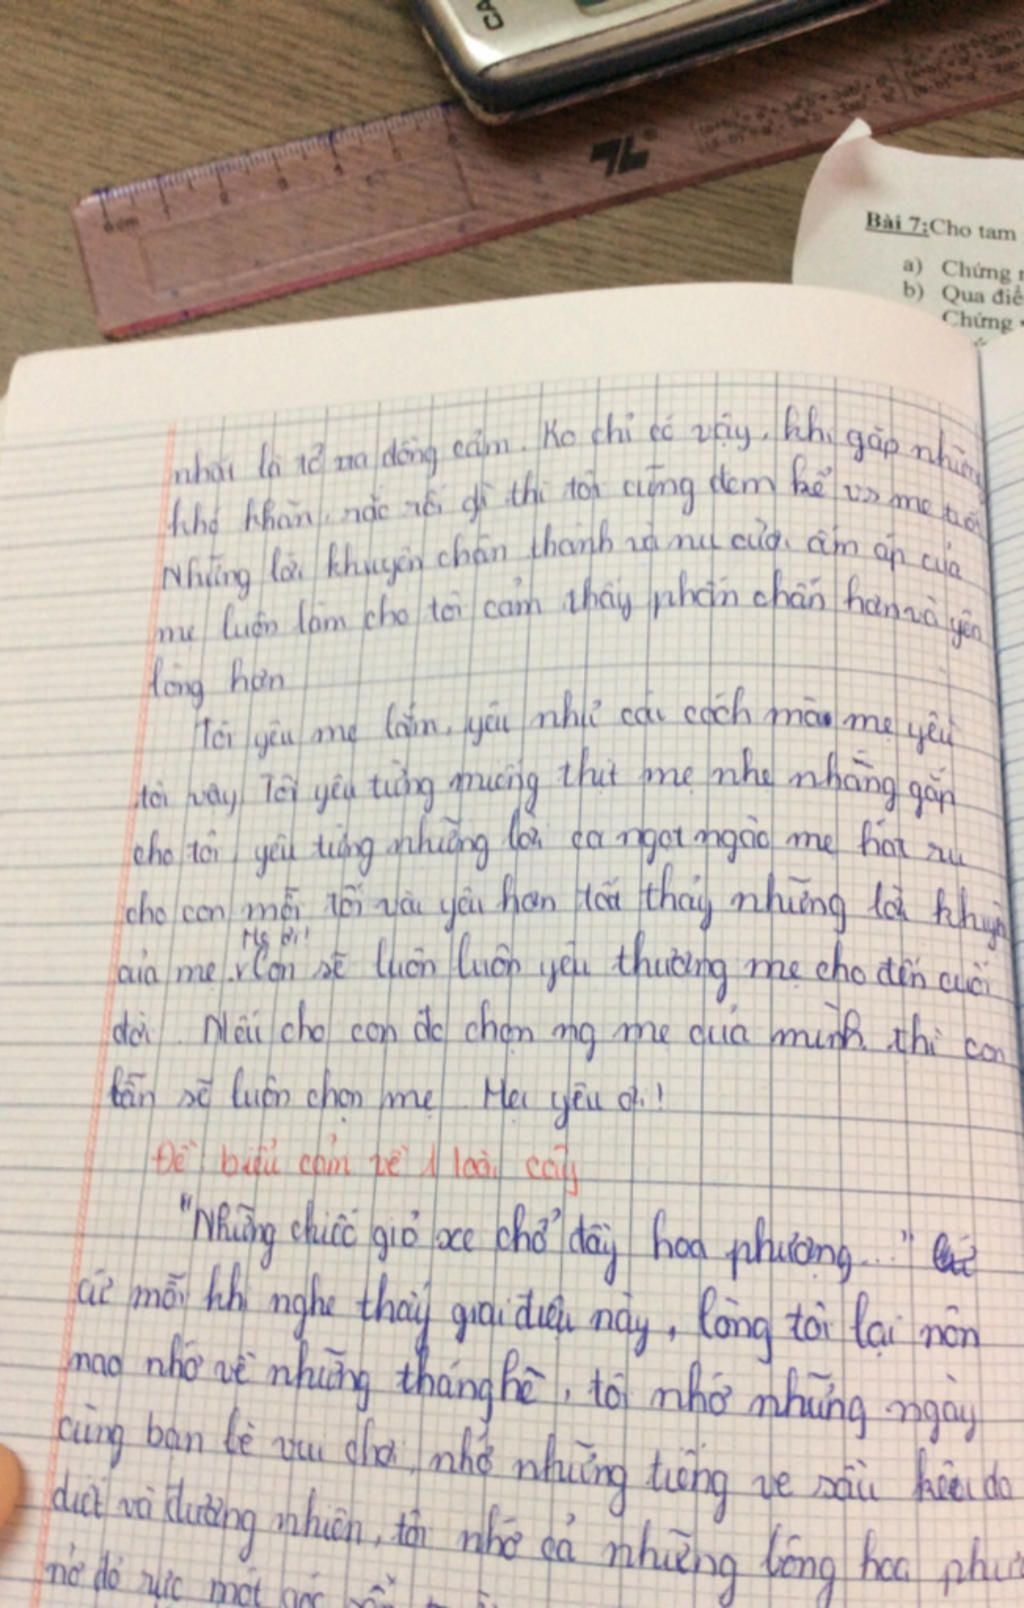 CA
Bài 7:Cho tam
a) Chứng
b) Qua điể
Chứng
nhất là tỏ ra đồng cảm. Ko chỉ có vậy, khi gặp những
khó khăn, rắc rối gì thì tôi cũng đem kể vs mẹ tôi
Những lời khuyên chân thành và nụ cười ấm áp của
mẹ luôn làm cho tôi cảm thấy phấn chấn hơn và yên
lòng hơn
Tôi yêu mẹ lắm, yêu như cái cách mà mẹ yêu
tôi vậy. Tôi yêu từng miếng thịt mẹ nhẹ nhàng gắp
cho tôi, yêu từng những lời ca ngọt ngào mẹ hát ru
cho con mỗi tối và yêu hơn tất thảy những lời khuyên
của mẹ. Mẹ ơi! Con sẽ luôn luôn yêu thương mẹ cho đến cuối
đời. Nếu cho con đc chọn ng mẹ của mình thì con
vẫn sẽ luôn chọn mẹ Mẹ yêu ơi!
Đề biểu cảm về 1 loài cây
"Những chiếc giỏ xe chở đầy hoa phượng..."
cứ mỗi khi nghe thấy giai điệu này, lòng tôi lại nôn
nao nhớ về những tháng hè, tôi nhớ những ngày
cùng bạn bè vui chơi, nhớ những tiếng ve sầu kêu da
diết và đương nhiên, tôi nhớ cả những bông hoa phượ
nở đỏ rực một góc